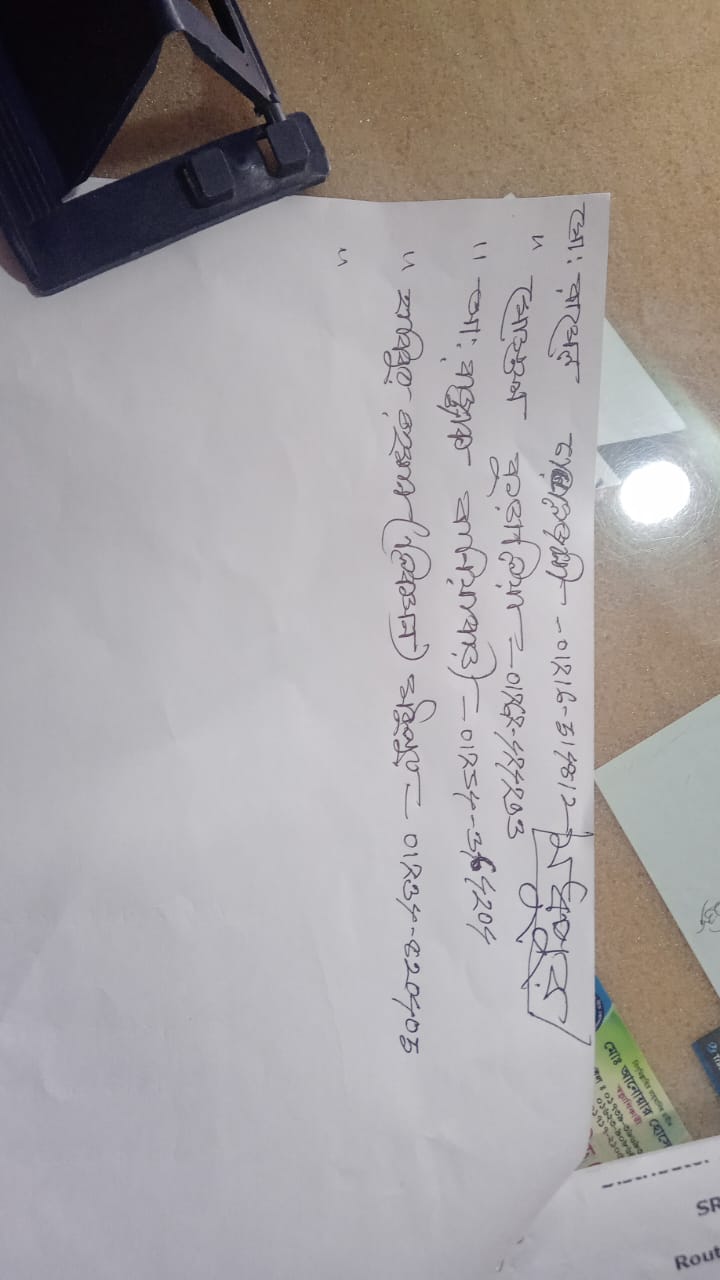 মো: রাসেল - 01716-514812 মধুপুর
" কুড়ালিয়া - 01767-474793
" আ: রাজ্জাক বানিয়াবাড়ী - 01754-364204
" হাবিবুর রহমান (লিকসন) মধুপুর - 01734-820405
"
মোঃ আনোয়ার হোসে
Rout
SR